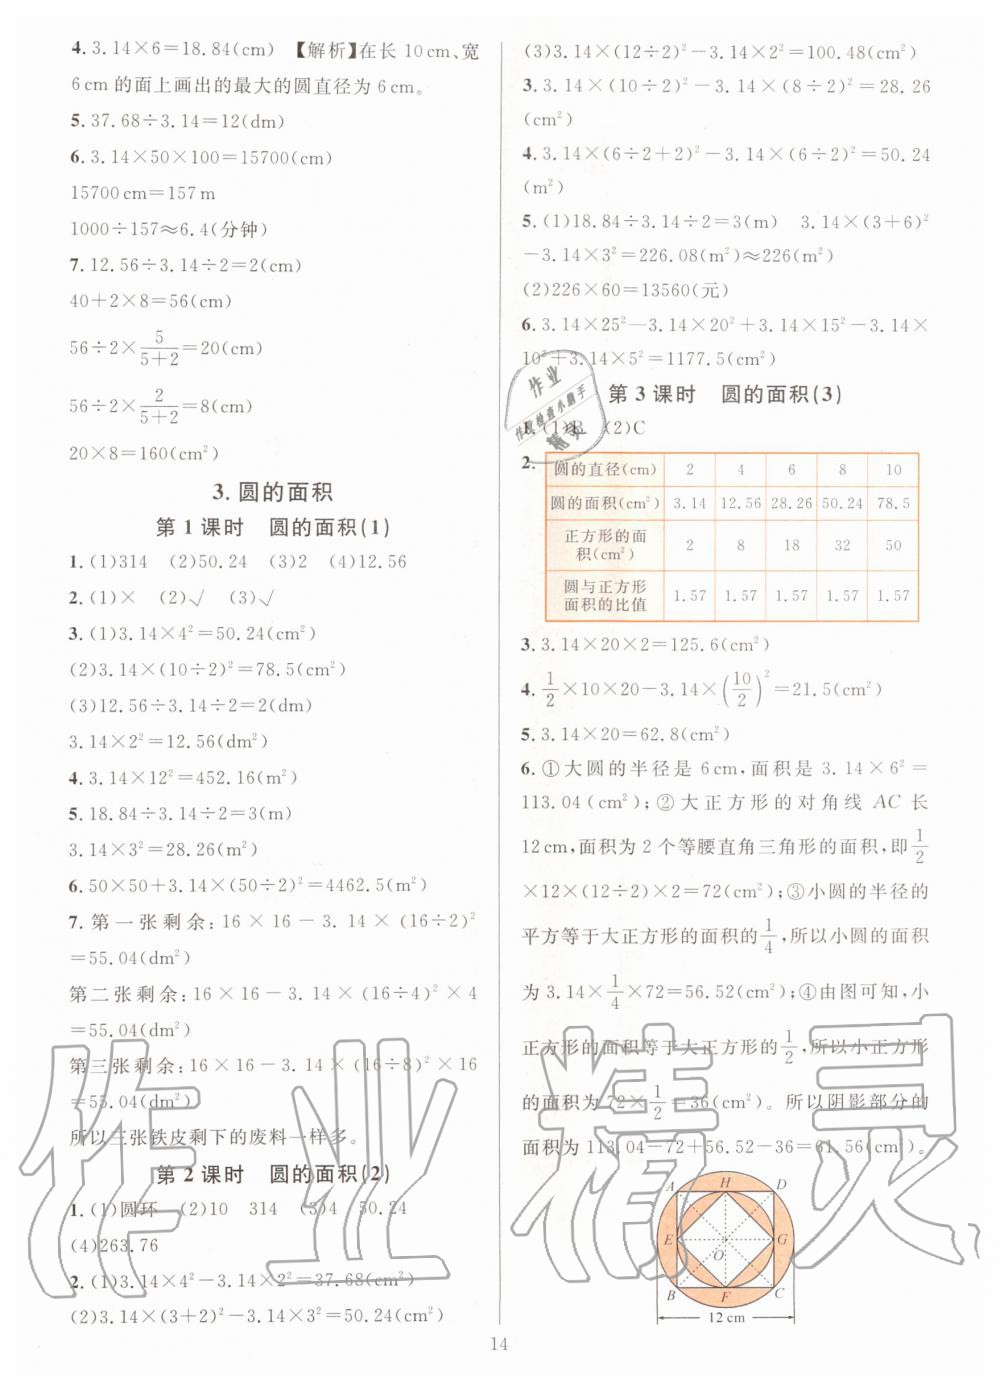 4. 3.14×6=18.84(cm) 【解析】在长 10cm、宽
6cm 的面上画出的最大的圆直径为 6cm。
5. 37.68÷3.14=12(dm)
6. 3.14×50×100=15700(cm)
15700cm=157m
1000÷157≈6.4(分钟)
7. 12.56÷3.14÷2=2(cm)
40+2×8=56(cm)
56÷2×5/(5+2)=20(cm)
56÷2×2/(5+2)=8(cm)
20×8=160(cm²)
3. 圆的面积
第 1 课时 圆的面积(1)
1. (1)314 (2)50.24 (3)2 (4)12.56
2. (1)× (2)√ (3)√
3. (1)3.14×4²=50.24(cm²)
(2)3.14×(10÷2)²=78.5(cm²)
(3)12.56÷3.14÷2=2(dm)
3.14×2²=12.56(dm²)
4. 3.14×12²=452.16(m²)
5. 18.84÷3.14÷2=3(m)
3.14×3²=28.26(m²)
6. 50×50+3.14×(50÷2)²=4462.5(m²)
7. 第一张剩余:16×16-3.14×(16÷2)²
=55.04(dm²)
第二张剩余:16×16-3.14×(16÷4)²×4
=55.04(dm²)
第三张剩余:16×16-3.14×(16÷8)²×16
=55.04(dm²)
所以三张铁皮剩下的废料一样多。
第 2 课时 圆的面积(2)
1. (1)圆环 (2)10 314 (3)4 50.24
(4)263.76
2. (1)3.14×4²-3.14×2²=37.68(cm²)
(2)3.14×(3+2)²-3.14×3²=50.24(cm²)
(3)3.14×(12÷2)²-3.14×2²=100.48(cm²)
3. 3.14×(10÷2)²-3.14×(8÷2)²=28.26
(cm²)
4. 3.14×(6÷2+2)²-3.14×(6÷2)²=50.24
(m²)
5. (1)18.84÷3.14÷2=3(m) 3.14×(3+6)²
-3.14×3²=226.08(m²)≈226(m²)
(2)226×60=13560(元)
6. 3.14×25²-3.14×20²+3.14×15²-3.14×
10²+3.14×5²=1177.5(cm²)
第 3 课时 圆的面积(3)
1. (1)B (2)C
2.
圆的直径(cm) 2 4 6 8 10
圆的面积(cm²) 3.14 12.56 28.26 50.24 78.5
正方形的面
积(cm²) 2 8 18 32 50
圆与正方形
面积的比值 1.57 1.57 1.57 1.57 1.57
3. 3.14×20×2=125.6(cm²)
4. 1/2×10×20-3.14×(10/2)²=21.5(cm²)
5. 3.14×20=62.8(cm²)
6. ①大圆的半径是 6cm,面积是 3.14×6²=
113.04(cm²);②大正方形的对角线 AC 长
12cm,面积为 2 个等腰直角三角形的面积,即1/2
×12×(12÷2)×2=72(cm²);③小圆的半径的
平方等于大正方形的面积的1/4,所以小圆的面积
为 3.14×1/4×72=56.52(cm²);④由图可知,小
正方形的面积等于大正方形的1/2,所以小正方形
的面积为 72×1/2=36(cm²)。所以阴影部分的
面积为 113.04-72+56.52-36=61.56(cm²)。
A H D
E G
O
B F C
12cm
14
作业
作业检查小助手
精灵
作业精灵